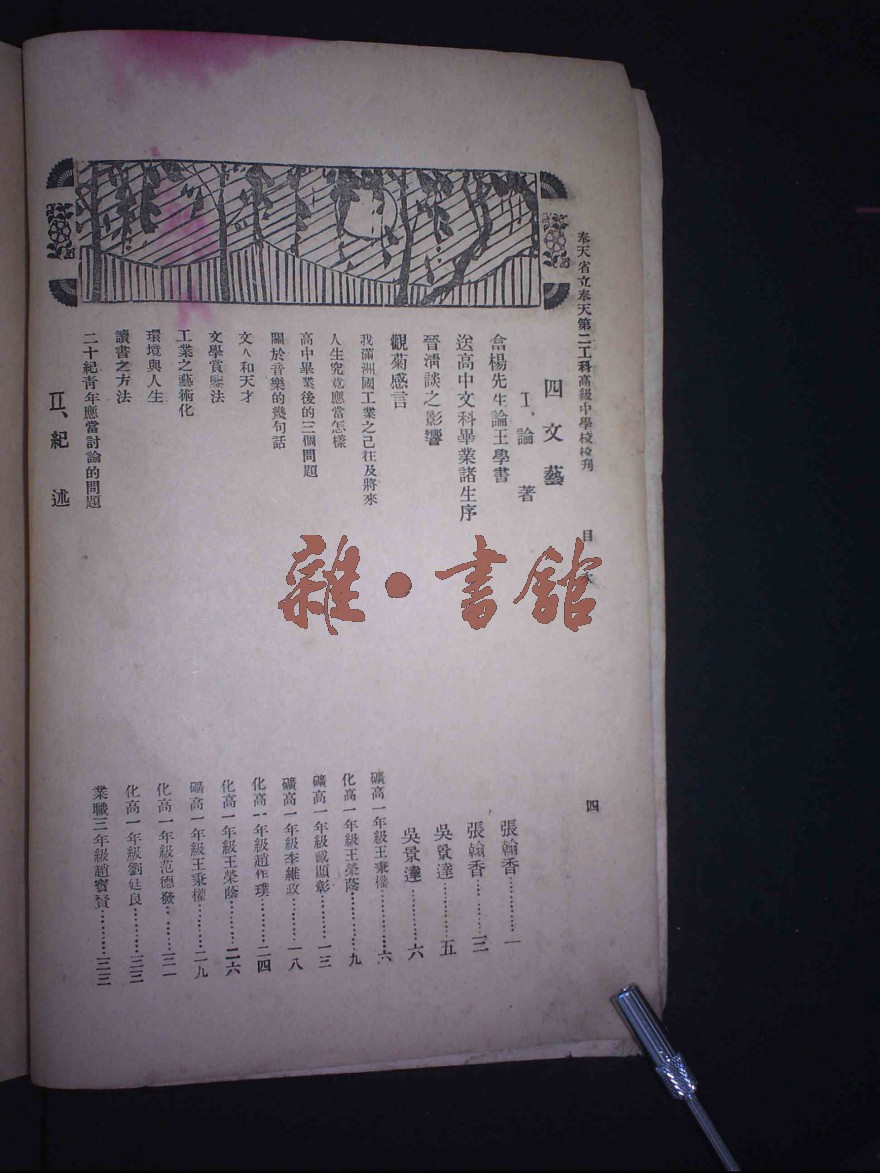 奉天省立奉天第二工科高級中學校校刊 目次 四
四 文 藝
I、論 著
畣楊先生論王學書 張翰香…………一
送高中文科畢業諸生序 張翰香…………三
晉清談之影響 吳景達…………五
觀菊感言 吳景達…………六
我滿洲國工業之已往及將來 礦高一年級王秉權…………六
人生究竟應當怎樣 化高一年級王榮蔭…………九
高中畢業後的三個問題 礦高一年級戴顯彰…………一三
關於音樂的幾句話 礦高一年級李維政…………一八
文人和天才 化高一年級趙作璞…………二四
文學賞鑒法 化高一年級王榮蔭…………二六
工業之藝術化 礦高一年級王秉權…………二九
環境與人生 化高一年級范德發…………三一
讀書之方法 化高一年級劉廷良…………三三
二十紀青年應當討論的問題 業職三年級趙寶賢…………三三
II、紀 述
雜·書館